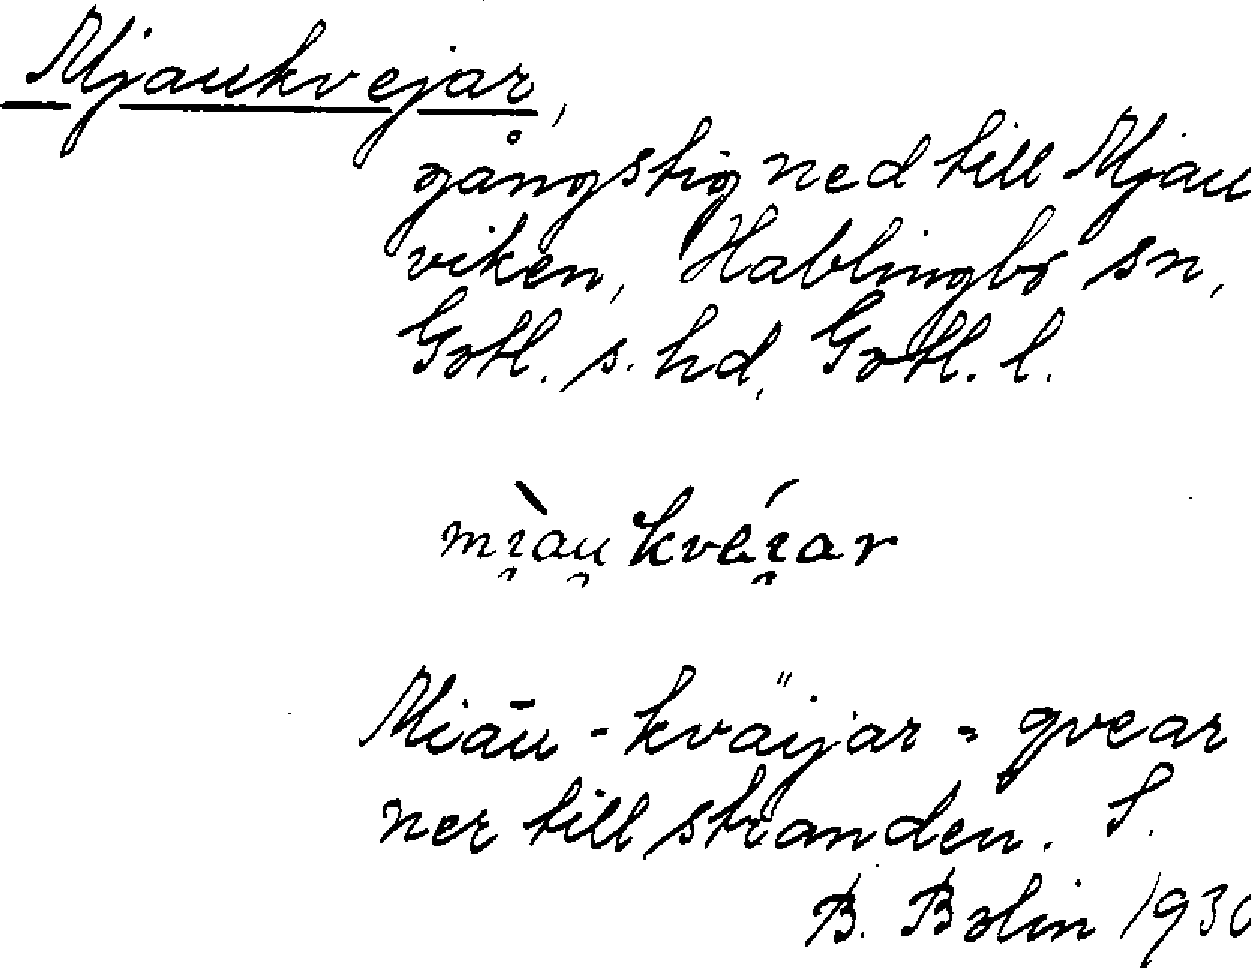 Mjaukvejar,
gångstig ned till Mjau
viken, Hablingbo sn,
Gotl. s. hd, Gotl. l.
mi̯àu̯kvéi̯ar
Miāu - kväijar = gvear
ner till stranden. S.
B. Bolin 1930